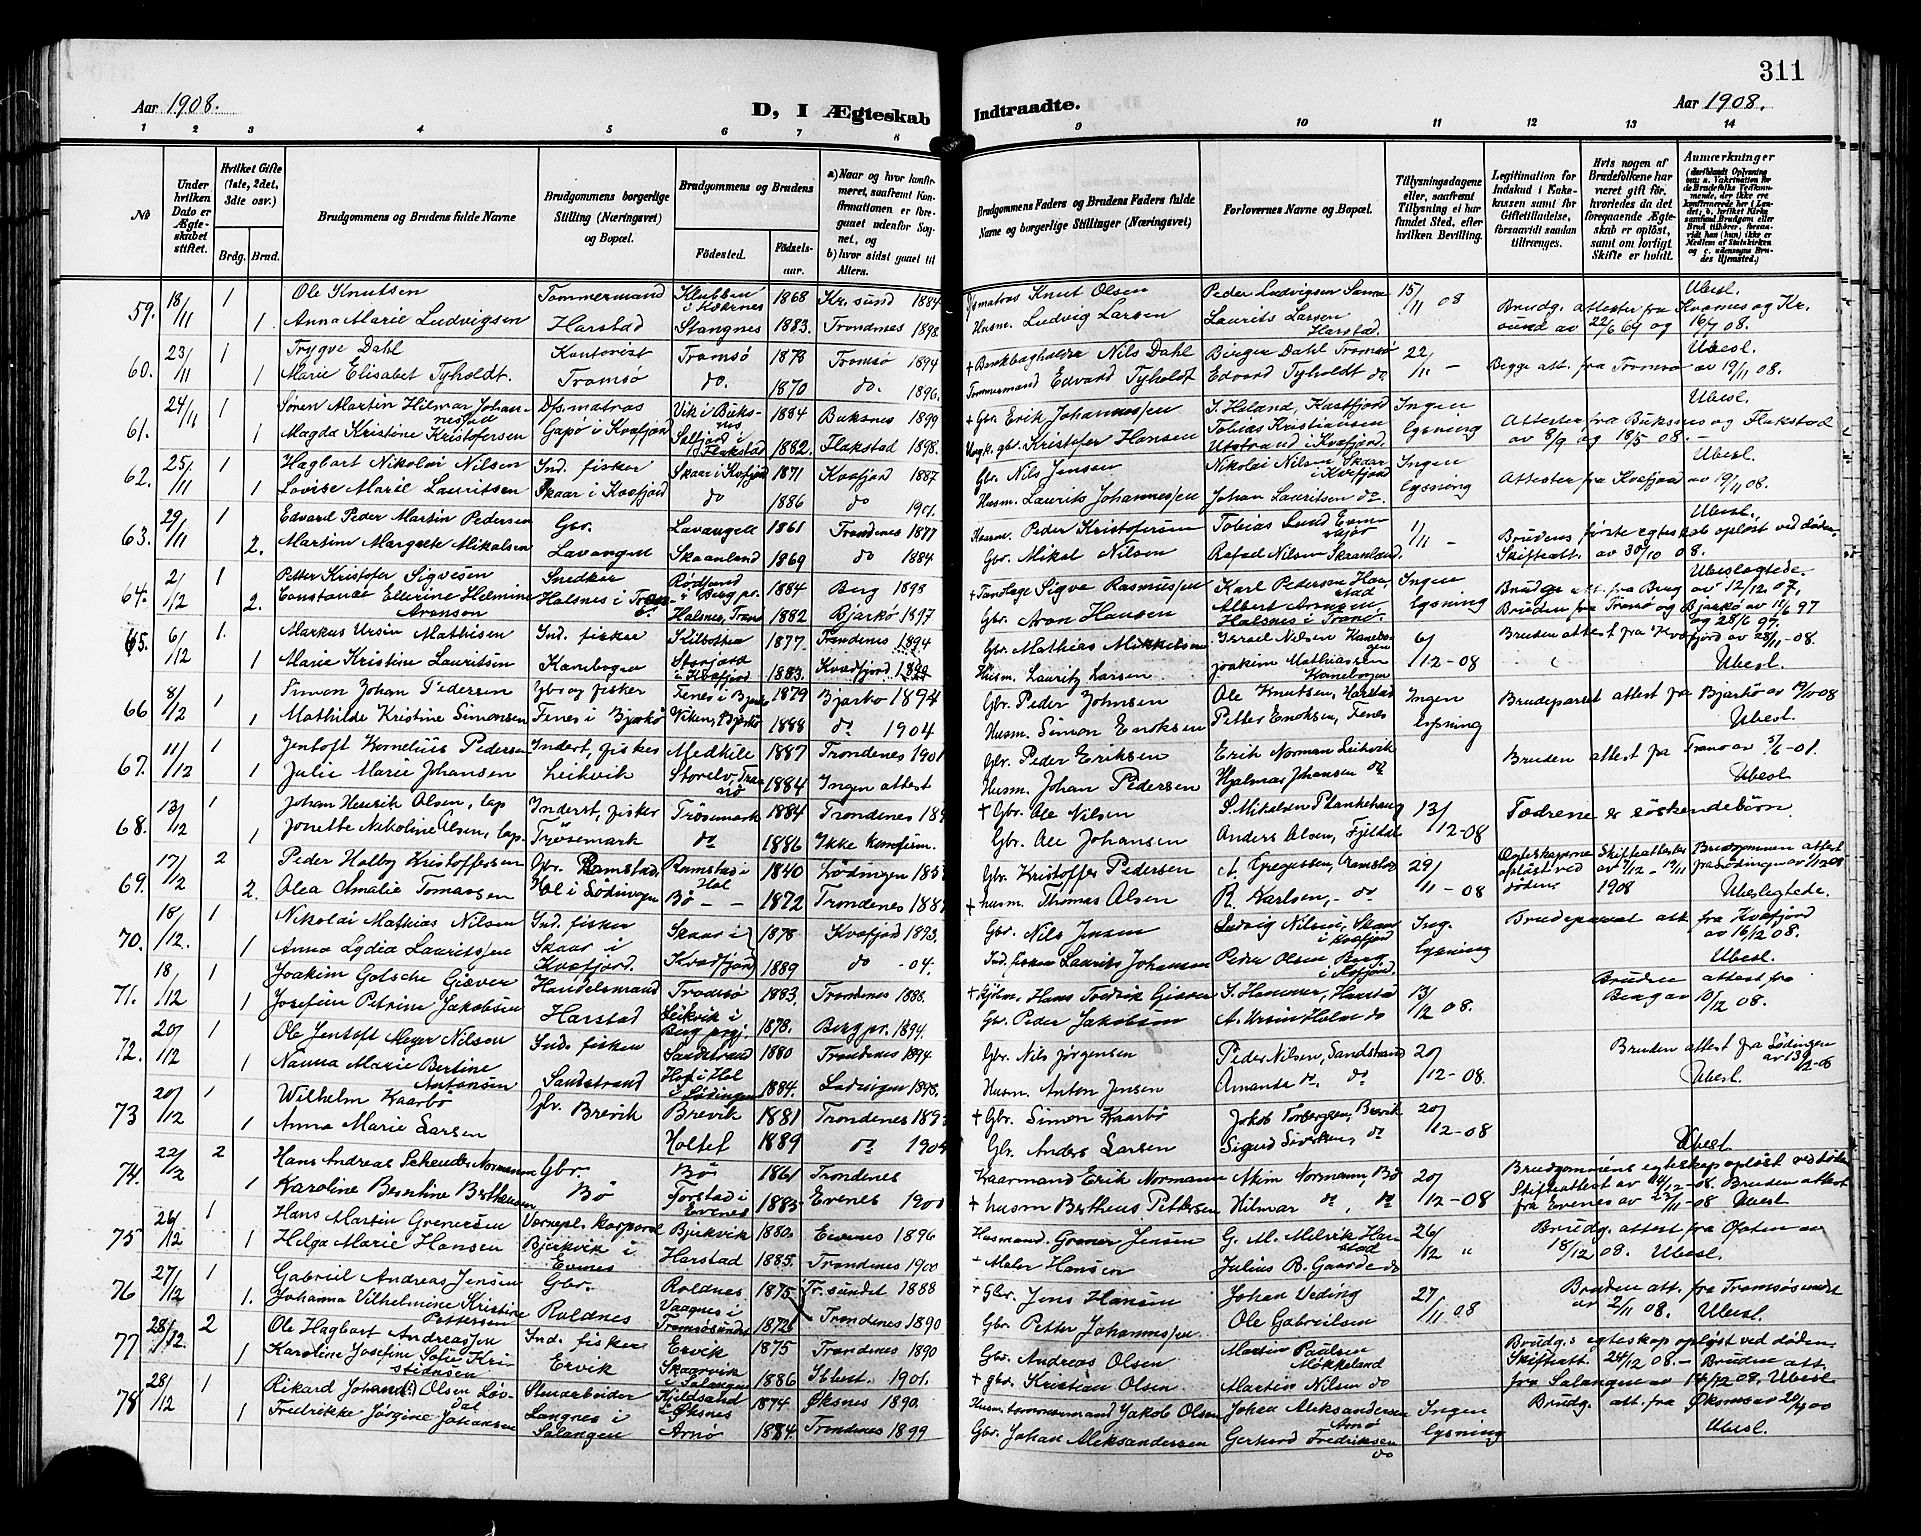 311
Aar 1908.
D, I Ægteskab Indtraadte.
Aar 1908.
1 2 3 4 5 6 7 8 9 10 11 12 13 14
No
Under hvilken Dato er Ægteskabet stiftet.
Hvilket Gifte (1ste, 2det, 3die osv.)
Brdg. Brud.
Brudgommens og Brudens fulde Navne
Brudgommens borgerlige Stilling (Næringsvei) og Bopæl.
Brudgommens og Brudens
Födested.
Födselsaar.
a) Naar og hvor konfirmeret, saafremt Konfirmationen er foregaaet udenfor Sognet, og
b) hvor sidst gaaet til Alters.
Brudgommens Faders og Brudens Faders fulde Navne og borgerlige Stillinger (Næringsvei)
Forlovernes Navne og Bopæl.
Tillysningsdagene eller, saafremt Tillysning ei har fundet Sted, efter hvilken Bevilling.
Legitimation for Indskud i Enkekassen samt for Giftetilladelse, forsaavidt saadan tiltrænges.
Hvis nogen af Brudefolkene har været gift för, hvorledes da det foregaaende Ægteskab er oplöst, samt om lovligt Skifte er holdt.
Anmærkninger
59. 18/11 1 Ole Knutsen Tømmermand Klubben i Kværnes 1868 Kr.sund 1884 Knut Olsen Peder Ludvigsen Sama 15/11 08 Brudg. attester fra Kværnes og Kr.sund av 22/6 64 og 16/7 08. Ubesl.
1. Anna Marie Ludvigsen Harstad Stangnes 1883. Trondenes 1898. Husm. Ludvig Larsen Laurits Larsen Harstad.
60. 23/11 1 Trygve Dahl Kontorist Tromsø 1873 Tromsø 1894 + Bankbogholder Nils Dahl Birger Dahl Tromsø 22/11 - Begge att. fra Tromsø av 19/11 08. Ubesl.
1 Marie Elisabet Tyholdt. Tromsø do. 1870 do. 1896. Tømmermand Edvard Tyholdt Edvard Tyholdt do
61. 24/11 1 Søren Martin Hilmar Johannessen Dfs.matros Vik i Buksnes 1884 Buksnes 1899 + Gbr. Erik Johannessen S. Heland, Kastfjord Ingen lysning Attester fra Buksnes og Flakstad av 8/9 og 18/5 08. - Ubesl.
1 Magda Kristine Kristofersen Gapø i Kvæfjord Selfjord i Flakstad 1882. Flakstad 1898. Kristofer Hansen Tobias Kristiansen Utstrand i Kvæfjord.
62. 25/11 1 Hagbart Nikolai Nilsen Ind. fisker Skaar i Kvæfjord 1871 Kvæfjord 1887 Gbr. Nils Jensen Nikolai Nilsen Skaar i Kvæfjord Ingen lysning Attester fra Kvæfjord av 19/11 08. Ubesl.
1 Lovise Marie Lauritsen Skaar i Kvæfjord do 1886 do 1901. Husm. Laurits Johannessen Johan Lauritsen do.
63. 29/11 1 Edvard Peder Martin Pedersen Gbr. Lavangen 1861 Trondenes 1877 Husm. Peder Kristofersen Tobias Lund 1/11 - Brudens første egteskab opløst ved døden. Skifteatt. av 30/10 08. Ubesl.
2. Martine Margrete Mikalsen Lavangen Skaanland 1869 do 1884 Gbr. Mikal Nilsen Rafael Nilsen Skaanland.
64. 2/12 1 Petter Kristofer Sigvesen Snedker Rødsand i Berg pr. 1884 Berg 1898 + Sigve Rasmussen Karl Petersen Harstad Ingen lysning Brudg. att. fra Berg av 12/12 07, Bruden fra Tranø og Bjarkø av 11/6 97 og 28/6 97. Ubeslegtede
2. Constance Ellerine Helmine Aronsen Halsnes i Tranø Halsnes, Tranø 1882 Bjarkø 1897 Gbr. Aron Hansen Albert Aronsen Halsnes i Tranø.
65. 6/12 1. Markus Ursin Mathisen Ind. fisker Kilbotn 1877. Trondenes 1894 Gbr. Mathias Mikkelsen Israel Nilsen Kanebogen 6/12-08 Bruden attest fra Kvæfjord av 28/11-08. Ubesl.
1 Marie Kristine Lauritsen Kanebogen Storjord i Kvæfjord 1883 Kvæfjord Husm. Lauritz Larsen Joakim Mathiassen Kanebogen
66 8/12 1 Simon Johan Pedersen Gbr og fisker Fenes i Bjarkø 1879 Bjarkø 1894 Gbr. Peder Johnsen Ole Knutsen, Harstad Ingen lysning Brudeparret attest fra Bjarkø av Ubesl.
1 Mathilde Kristine Simonsen Fenes i Bjarkø Viken, Bjarkø 1888 do 1904 Husm. Simon Enoksen Petter Enoksen, Fenes
67. 11/12 1 Jentoft Kornelius Pedersen Inderst, fisker Medkile 1887 Trondenes 1901 Gbr. Peder Eriksen Erik Norman Leikvik Bruden attest fra Tranø av 5/6-01. Ubesl.
1 Julie Marie Johansen Leikvik Storelv, Tranø 1884 Ingen attest Husm. Johan Pedersen Hjalmar Johansen do
68. 13/12 1 Johan Henrik Olsen, lap Inderst, fisker Trøsemark 1884 Trondenes + Gbr. Ole Nilsen S. Mikalsen Plankehaug 13/12-08 Fædrene er søskendebørn
1 Jonette Nikoline Olsen, lap. Trøsemark do 1886 Ikke konfirm. Gbr. Ole Johansen Anders Olsen, Fjeldal
69. 17/12 2 Peder Holby Kristoffersen Gbr. Ramstad, Ramstad i Hol 1840 Lødingen Gbr. Kristoffer Pedersen A. Gregussen, 29/11-08 Egteskaperne opløst ved døden. Skifteattester av 7/12 - 19/11 1908 Brudgommen attest fra Lødingen av Ubeslegtede.
2. Olea Amalie Tomassen Hol i Lødingen Bø - - 1872 Trondenes + husm. Thomas Olsen R. Karlsen, - do
70. 18/12. 1 Nikolai Mathias Nilsen Ind. fisker Skaar i Kvæfjord 1878 Kvæfjord 1893. Gbr. Nils Jensen Ludvig Nilsen, Skaar i Kvæfjord Ing. lysning Brudeparret att. fra Kvæfjord av 16/12 08. Ubesl.
1 Anna Lydia Lauritssen Skaar i Kvæfjord. 1889 do -04. Ind. fisker Laurits Johansen Peder Olsen Berg i Kvæfjord.
71. 18/12 1 Joakim Gotsche Giæver Handelsmand Tromsø 1883. Trondenes 1888. + Kjøbm. Hans Fredrik Giæver S. Hammer, Harstad 13/12 08. Bruden attest fra Berg av 10/12 08.
1 Josefine Petrine Jakobsen Harstad Leikvik i Berg prgj. 1878. Berg pr. 1894. Gbr. Peder Jakobsen A. Ursin Holm do
72. 20/12 1 Ole Jentoft Meyer Nilsen Ind. fisker Sandstrand 1880 Trondenes 1894 Gbr. Nils Jørgensen Peder Nilsen, Sandstrand 20/12-08. Bruden attest fra Lødingen av Ubesl.
1 Nanna Marie Bertine Antonsen Sandstrand Hof i Hol i Lødingen 1884. Lødingen 1898. Husm. Anton Jensen Amanda do. do
73 20/12 1 Wilhelm Kaarbø Gbr. Brevik Brevik 1881 Trondenes + Gbr. Simon Kaarbø Jakob Torbergsen, Brevik 20/12-08 Ubesl.
1 Anna Marie Larsen Holtet 1889 do 1904 Gbr. Anders Larsen Sigurd Sivertsen, do
74. 22/12 2 Hans Andreas Normann Gbr. Bø 1861 Trondenes Kaarmand Erik Normann Akim Normann, Bø 20/12-08 Brudgommens egteskap opløst ved døden Skifteattest av 14/12-08. Bruden attest fra Evenes av 23/11-08 Ubesl.
1 Karoline Bergitine Bertheussen Bø Forstad i Evenes 1885 Evenes 1900 + husm Bertheus Pettersen Hilmar do, do
75 26/12 1 Hans Martin Grenersen Vernepl. korporal Bjerkvik 1880. Evenes 1896 Husmand. Grener Jensen G. M. Melvik Harstad 26/12 " Brudg. attest fra Ofoten av 18/12 08. Ubesl.
1 Helga Marie Hansen Bjerkvik i Evenes Harstad 1885. Trondenes 1900 Maler Hansen Julius B. Gaarde do
76 27/12 1 Gabriel Andreas Jensen Gbr. Roldnes 1875 Tr.sundet 1888 + Gbr. Jens Hansen Johan Veding 27/11 08 Bruden att. fra Tromsøsundet av 2/11 08. Ubesl.
1. Johanna Vilhelmine Kristine Pettersen Roldnes Vaagnes i Tromsøsundet 1872 Trondenes 1890 Gbr. Petter Johannessen Ole Gabrielsen
77 28/12. 2 Ole Hagbart Andreassen Ind. fisker Ervik 1875 Trondenes 1890 Gbr. Andreas Olsen Martin Paulsen Møkkeland Brudg.s egteskap opløst ved døden. Skifteatt. 24/12 08. - Bruden att. fra Salangen av 14/12 08, Ubesl
1 Karoline Josefine Sofie Kristensen Ervik Skaarvik i Salangen 1886 Ibbest. 1901. + gbr. Kristian Olsen Martin Nilsen do
78 28/12 1 Rikard Johan Olsen Løvdal Stenarbeider Kjeldsand i Øksnes 1874 Øksnes 1890. Husm. tømmermand Jakob Olsen Johan Aleksandersen Arnø Ingen lysning Brudg. att. fra Øksnes av Ubesl.
1 Fredrikke Jørgine Johansen Langnes i Salangen Arnø 1884. Trondenes 1899 Gbr. Johan Aleksandersen Gerhard Fredriksen do